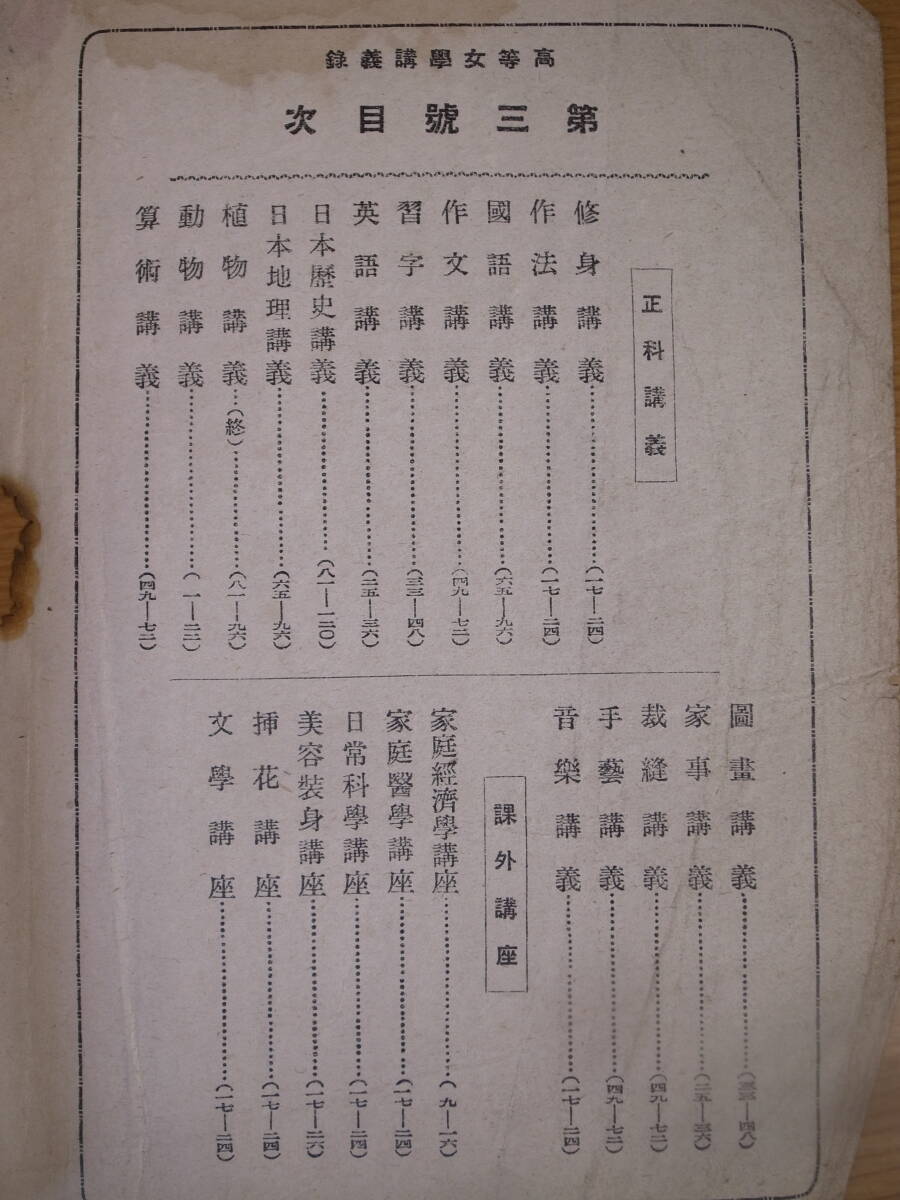 高等女學講義錄
第三號目次
正科講義
修身講義…………(一七—二四)
作法講義…………(一七—二四)
國語講義…………(六五—九六)
作文講義…………(四九—七二)
習字講義…………(三三—四八)
英語講義…………(二五—三六)
日本歷史講義…………(八一—一二〇)
日本地理講義…………(六五—九六)
植物講義…(終)…………(八一—九六)
動物講義…………(一—二二)
算術講義…………(四九—七二)
圖畫講義…………(三三—四八)
家事講義…………(二五—三六)
裁縫講義…………(四九—七二)
手藝講義…………(四九—七二)
音樂講義…………(一七—二四)
課外講座
家庭經濟學講座…………(九—一六)
家庭醫學講座…………(一七—二四)
日常科學講座…………(一七—二四)
美容裝身講座…………(一七—二六)
揷花講座…………(一七—二四)
文學講座…………(一七—二四)